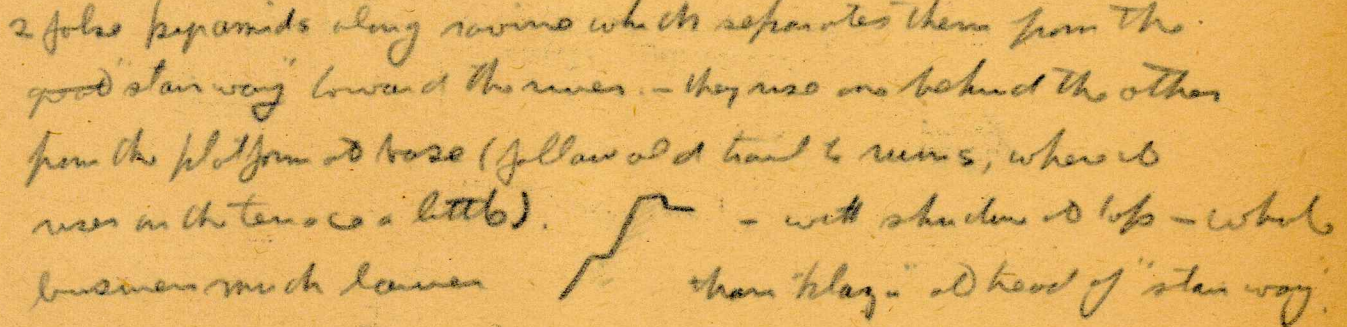 2 false pyramids along ravine which separates them from the
good "stairway" toward the river. - they rise one behind the other
from the platform at base (follow old trail to ruins, where it
rises on the terrace a little). - with shadow at top - whole
business much lower than "plaza" at head of "stairway".